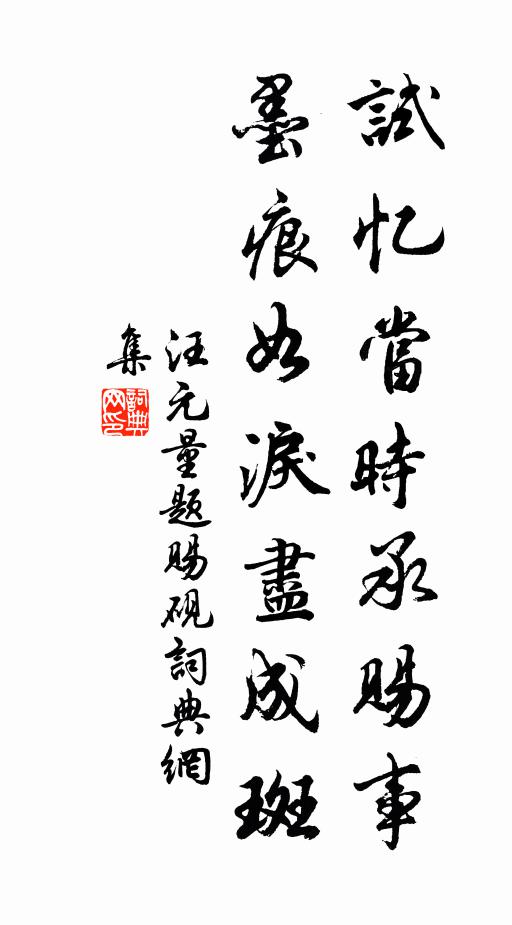 試忆當時承賜事
墨痕如淚盡成斑
汪元量题賜砚詞典網
集
詞典
网印